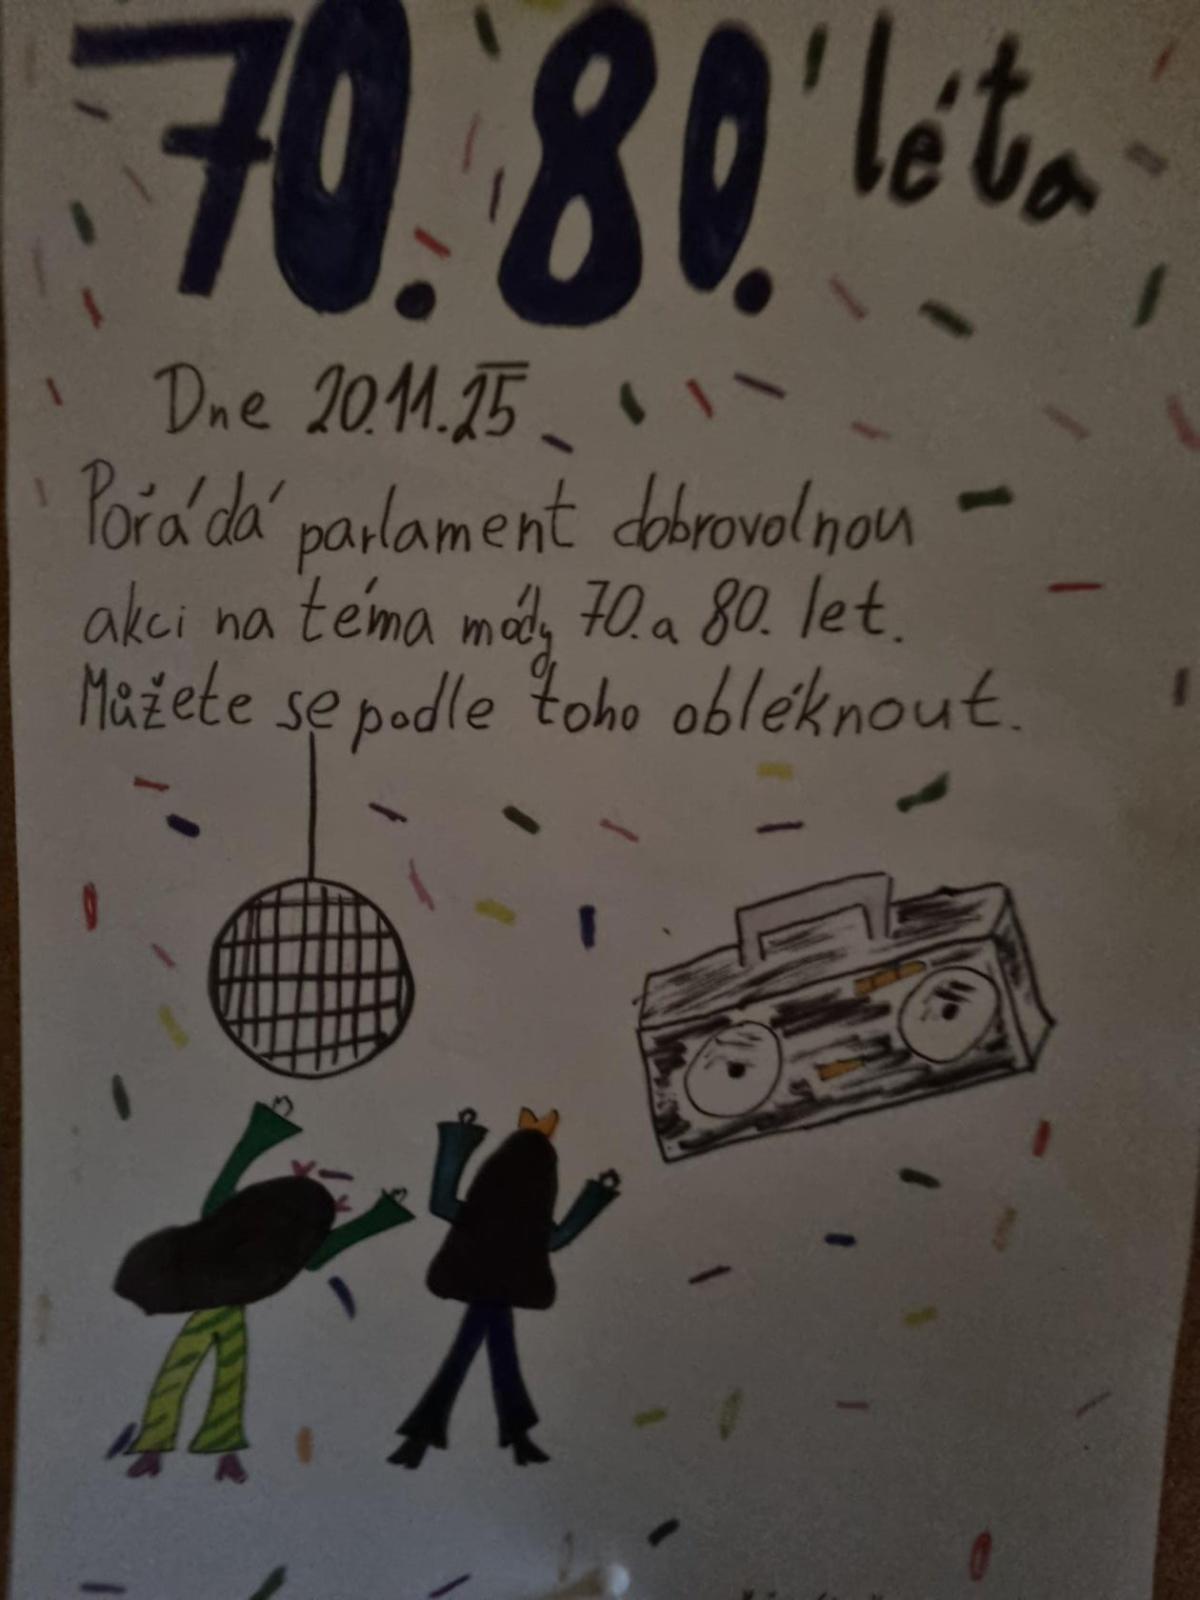 70. 80. léta
Dne 20.11.25
Pořádá parlament dobrovolnou
akci na téma módy 70. a 80. let.
Můžete se podle toho obléknout.